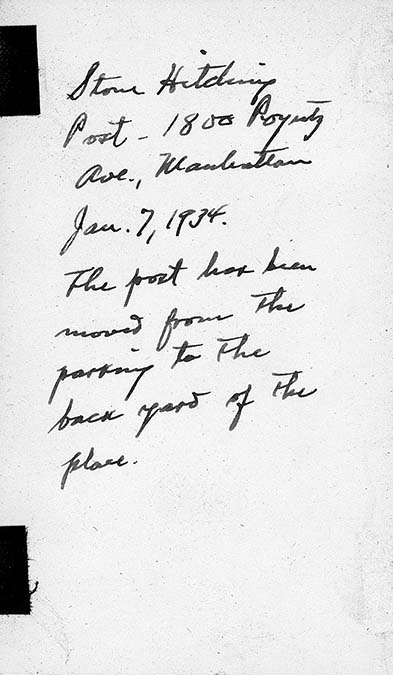 Stone Hitching
Post - 1800 Poyntz
Ave., Manhattan
Jan. 7, 1934.
The post has been
moved from the
parking to the
back yard of the
place.